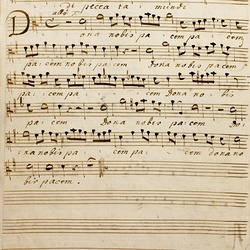 di pecca ta mundi
Dona nobis pa cem pa cem
pa cem nobis pa cem Dona nobis pacem
pa cem pa cem Dona no bis
pa cem Dona nobis pa cem Do
na nobis pa cem pa cem dona no
bis pacem.